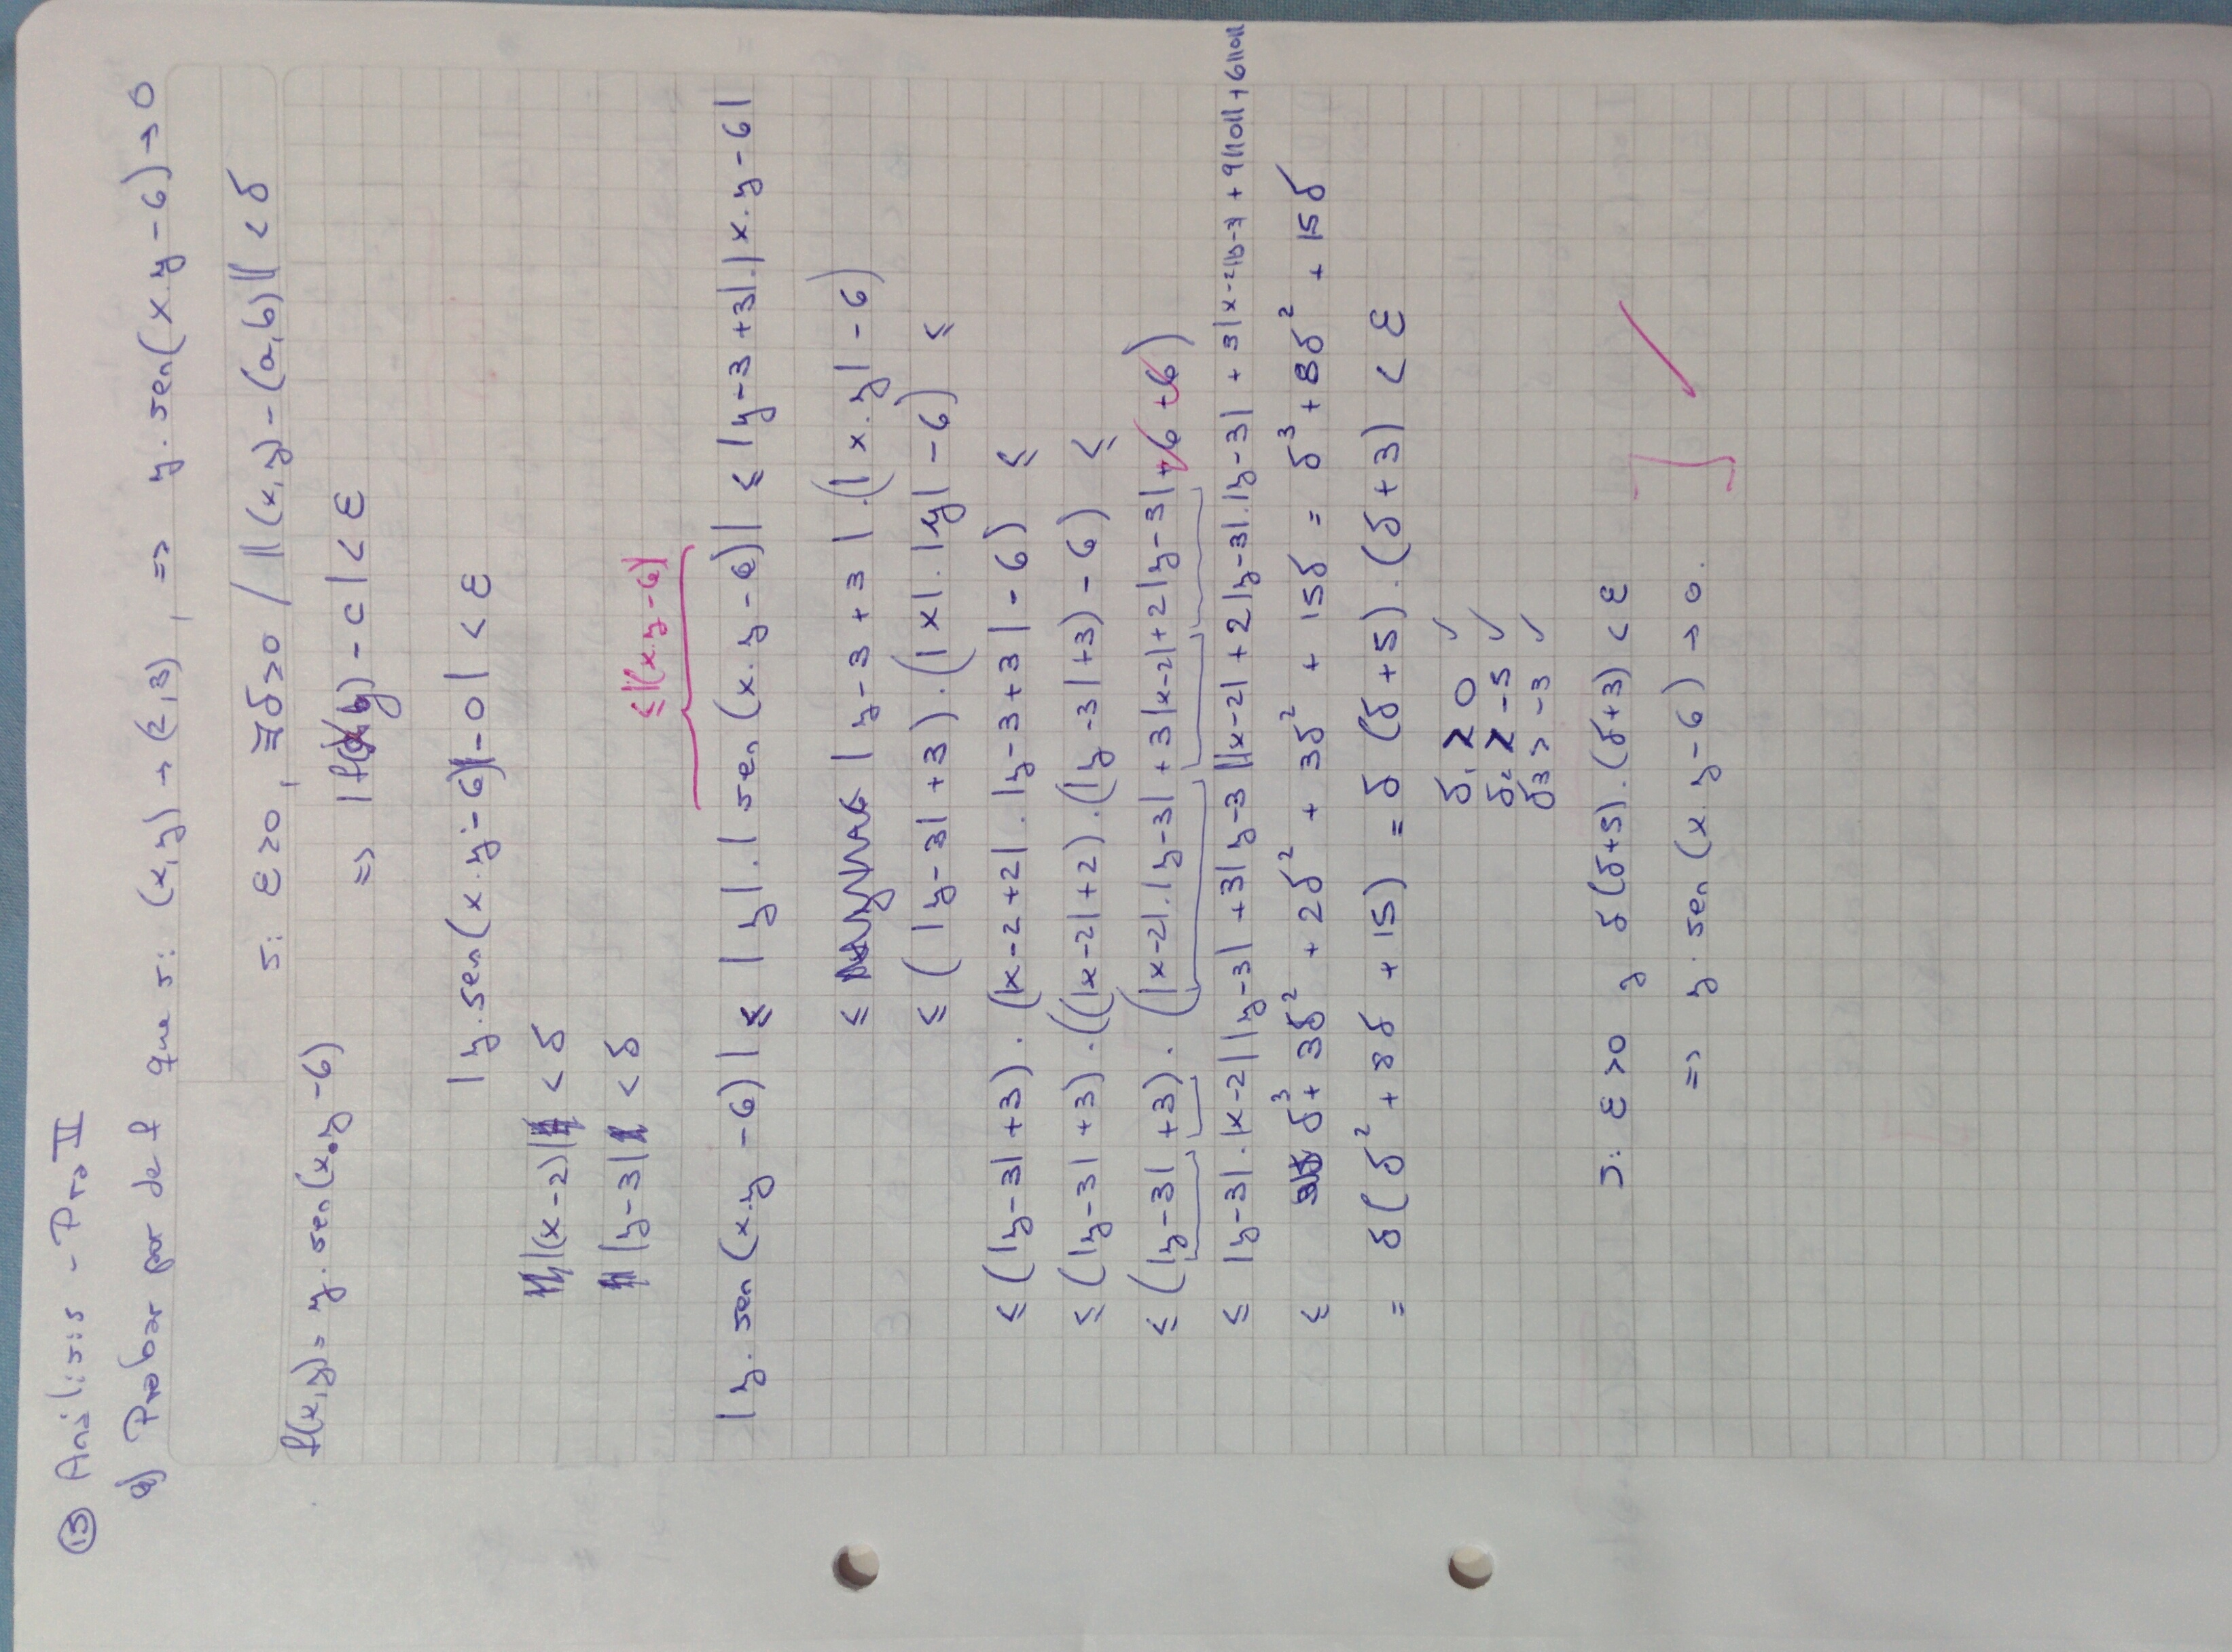 ⑬ Análisis - Pra II
a) Probar por def que si (x,y) → (2,3), => y. sen(x.y-6) → 0
si ε>0, ∃δ>0 / ||(x,y)-(a,b)|| < δ
f(x,y)= y. sen(x.y-6)
=> |f(x,y) - c| < ε
|y.sen(x.y-6)-0| < ε
|(x-2)| < δ
|y-3| < δ
≤|(x.y-6)|
|y. sen(x.y-6)| ≤ |y|.|sen(x.y-6)| ≤ |y-3+3|.|x.y-6|
≤ |y-3+3|.(|x.y|-6)
≤ (|y-3|+3).(|x|.|y|-6) ≤
≤ (|y-3|+3).(|x-2+2|.|y-3+3|-6) ≤
≤ (|y-3|+3).((|x-2|+2).(|y-3|+3)-6) ≤
≤ (|y-3|+3).(|x-2|.|y-3|+3|x-2|+2|y-3|+6-6)
≤ |y-3|.|x-2||y-3| +3|y-3||x-2| + 2|y-3|.|y-3| + 3|x-2||y-3| + 9||0|| + 6||0||
≤ δ³+ 3δ² + 2δ² + 3δ² + 15δ = δ³ + 8δ² + 15δ
= δ(δ² + 8δ + 15) = δ(δ+5).(δ+3) < ε
δ₁ ≥ 0 ✓
δ₂ > -5 ✓
δ₃ > -3 ✓
si ε>0 y δ(δ+5).(δ+3) < ε
=> y. sen(x.y-6) → 0. ✓